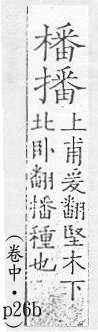 橎播
上甫爰翻堅木下
北卧翻播種也
（卷中・p26b）